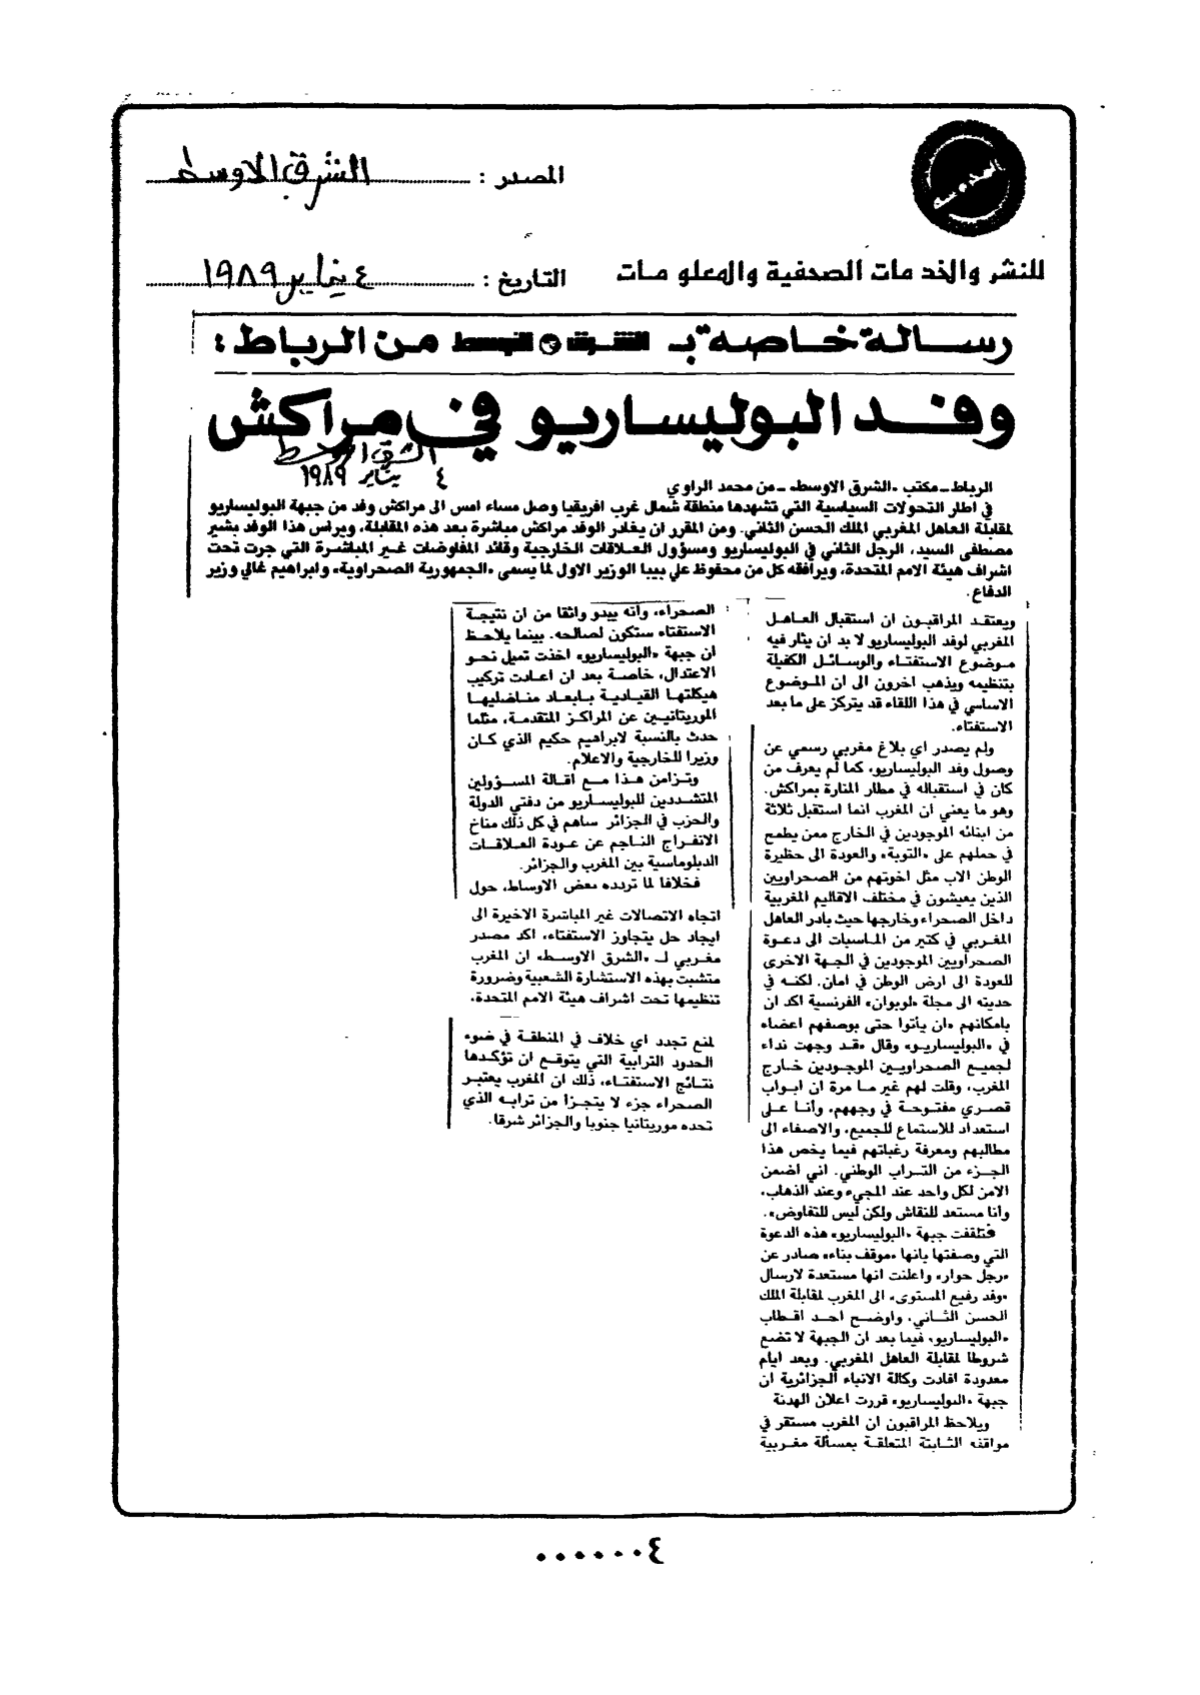 المصدر : الشرق الاوسط
للنشر والخدمات الصحفية والمعلومات
التاريخ : ٤ يناير ١٩٨٩
رسالة خاصة بـ الشرق الاوسط من الرباط :
وفد البوليساريو في مراكش
الشرق الاوسط
٤ يناير ١٩٨٩
الرباط ـ مكتب «الشرق الاوسط» ـ من محمد الراوي
في اطار التحولات السياسية التي تشهدها منطقة شمال غرب افريقيا وصل مساء امس الى مراكش وفد من جبهة البوليساريو
لمقابلة العاهل المغربي الملك الحسن الثاني. ومن المقرر ان يغادر الوفد مراكش مباشرة بعد هذه المقابلة، ويراس هذا الوفد بشير
مصطفى السيد، الرجل الثاني في البوليساريو ومسؤول العلاقات الخارجية وقائد المفاوضات غير المباشرة التي جرت تحت
اشراف هيئة الامم المتحدة، ويرافقه كل من محفوظ علي بيبا الوزير الاول لما يسمى «الجمهورية الصحراوية» وابراهيم غالي وزير
الدفاع.
ويعتقد المراقبون ان استقبال العاهل
المغربي لوفد البوليساريو لا بد ان يثار فيه
موضوع الاستفتاء والوسائل الكفيلة
بتنظيمه ويذهب اخرون الى ان الموضوع
الاساسي في هذا اللقاء قد يتركز على ما بعد
الاستفتاء.
ولم يصدر اي بلاغ مغربي رسمي عن
وصول وفد البوليساريو، كما لم يعرف من
كان في استقباله في مطار المنارة بمراكش.
وهو ما يعني ان المغرب انما استقبل ثلاثة
من ابنائه الموجودين في الخارج ممن يطمح
في حملهم على «التوبة» والعودة الى حظيرة
الوطن الاب مثل اخوتهم من الصحراويين
الذين يعيشون في مختلف الاقاليم المغربية
داخل الصحراء وخارجها حيث بادر العاهل
المغربي في كثير من المناسبات الى دعوة
الصحراويين الموجودين في الجهة الاخرى
للعودة الى ارض الوطن في امان. لكنه في
حديثه الى مجلة «لوبوان» الفرنسية اكد ان
بامكانهم «ان يأتوا حتى بوصفهم اعضاء
في «البوليساريو» وقال «قد وجهت نداء
لجميع الصحراويين الموجودين خارج
المغرب، وقلت لهم غير ما مرة ان ابواب
قصري مفتوحة في وجههم، وأنا على
استعداد للاستماع للجميع، والاصغاء الى
مطالبهم ومعرفة رغباتهم فيما يخص هذا
الجزء من التراب الوطني. اني اضمن
الامن لكل واحد عند المجيء وعند الذهاب،
وانا مستعد للنقاش ولكن ليس للتفاوض».
فتلقفت جبهة «البوليساريو» هذه الدعوة
التي وصفتها بانها «موقف بناء» صادر عن
«رجل حوار» واعلنت انها مستعدة لارسال
«وفد رفيع المستوى» الى المغرب لمقابلة الملك
الحسن الثاني، واوضح احد اقطاب
«البوليساريو» فيما بعد ان الجبهة لا تضع
شروطا لمقابلة العاهل المغربي. وبعد ايام
معدودة افادت وكالة الانباء الجزائرية ان
جبهة «البوليساريو» قررت اعلان الهدنة
ويلاحظ المراقبون ان المغرب مستقر في
مواقفه الثابتة المتعلقة بمسألة مغربية
الصحراء، وأنه يبدو واثقا من ان نتيجة
الاستفتاء ستكون لصالحه. بينما يلاحظ
ان جبهة «البوليساريو» اخذت تميل نحو
الاعتدال، خاصة بعد ان اعادت تركيب
هيكلتها القيادية بابعاد مناضليها
الموريتانيين عن المراكز المتقدمة، مثلما
حدث بالنسبة لابراهيم حكيم الذي كان
وزيرا للخارجية والاعلام.
وتزامن هذا مع اقالة المسؤولين
المتشددين للبوليساريو من دفتي الدولة
والحزب في الجزائر ساهم في كل ذلك مناخ
الانفراج الناجم عن عودة العلاقات
الدبلوماسية بين المغرب والجزائر.
فخلافا لما تردده بعض الاوساط، حول
اتجاه الاتصالات غير المباشرة الاخيرة الى
ايجاد حل يتجاوز الاستفتاء، اكد مصدر
مغربي لـ «الشرق الاوسط» ان المغرب
متشبت بهذه الاستشارة الشعبية وضرورة
تنظيمها تحت اشراف هيئة الامم المتحدة،
لمنع تجدد اي خلاف في المنطقة في ضوء
الحدود الترابية التي يتوقع ان تؤكدها
نتائج الاستفتاء، ذلك ان المغرب يعتبر
الصحراء جزء لا يتجزا من ترابه الذي
تحده موريتانيا جنوبا والجزائر شرقا.
٠٠٠٠٠٠٤